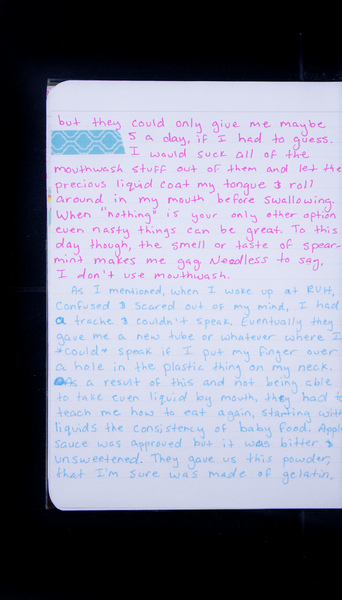 but they could only give me maybe
5 a day, if I had to guess.
I would suck all of the
mouthwash stuff out of them and let the
precious liquid coat my tongue & roll
around in my mouth before swallowing.
When "nothing" is your only other option
even nasty things can be great. To this
day though, the smell or taste of spear-
mint makes me gag. Needless to say,
I don't use mouthwash.
As I mentioned, when I woke up at RUH,
confused & scared out of my mind, I had
a trache & couldn't speak. Eventually they
gave me a new tube or whatever where I
*could* speak if I put my finger over
a hole in the plastic thing on my neck.
As a result of this and not being able
to take even liquid by mouth, they had to
teach me how to eat again, starting with
liquids the consistency of baby food. Apple
sauce was approved but it was bitter &
unsweetened. They gave us this powder,
that I'm sure was made of gelatin,